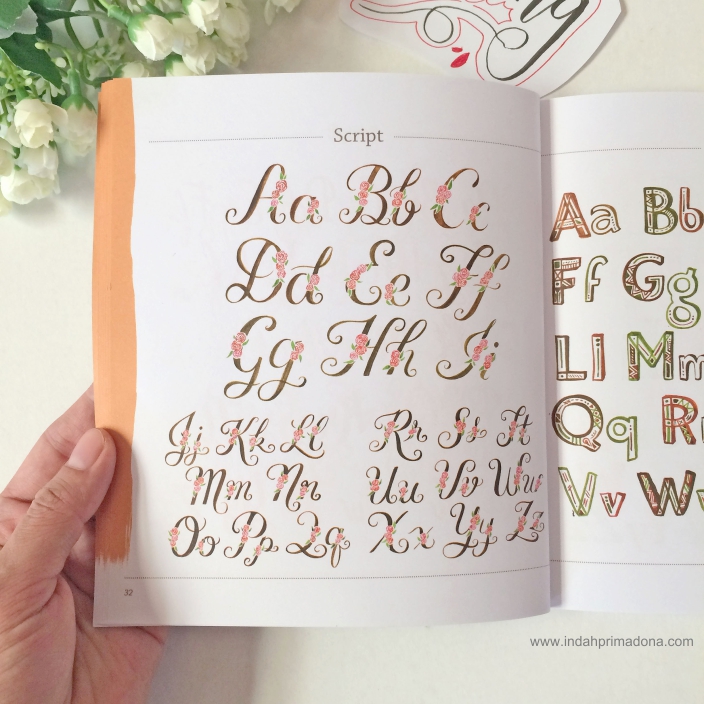 ng
Script
Aa Bb Cc
Dd Ee Ff
Gg Hh Ii
Jj Kk Ll
Mm Nn
Oo Pp Qq
Rr Ss Tt
Uu Vv Ww
Xx Yy Zz
32
Aa Bb
Ff Gg
Ll Mm
Qq R
Vv W
www.indahprimadona.com